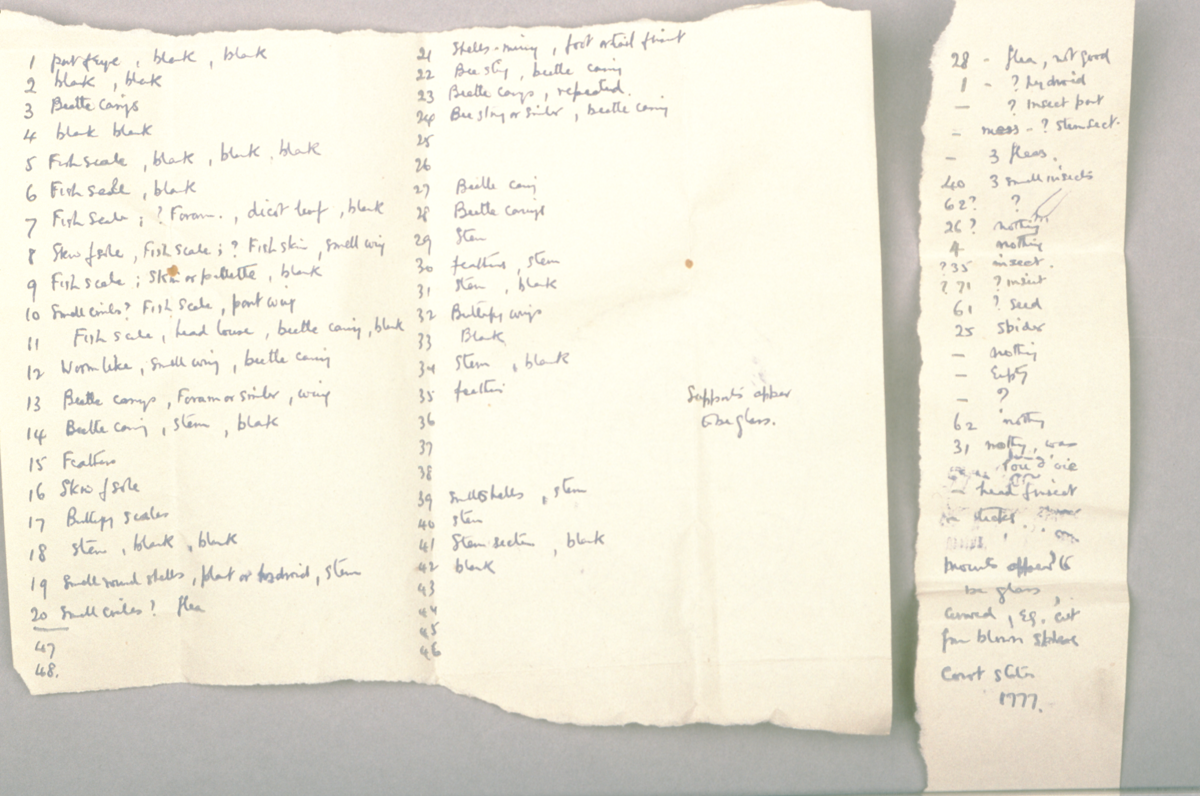 1 part of eye, blank, blank
2 blank, blank
3 Beetle casings
4 blank blank
5 Fish scale, blank, blank, blank
6 Fish scale, blank
7 Fish Scale; ? Foram., dicot leaf, blank
8 Skin of sole, Fish scale; ? Fish skin, small wing
9 Fish scale; Skin or palette, blank
10 Small coils? Fish Scale, part wing
11 Fish scale, head louse, beetle casing, blank
12 Wormlike, small wing, beetle casing
13 Beetle casings, Foram or similar, wing
14 Beetle casing, stem, blank
15 Feathers
16 Skin of sole
17 Butterfly scales
18 Stem, blank, blank
19 Small round shells, plant or hydroid, stem
20 Small coils? flea
47
48.
21 Shells - many, foot or tail
22 Bee sting, beetle casing
23 Beetle casings, repeated.
24 Bee sting or similar, beetle casing
25
26
27 Beetle casing
28 Beetle casings
29 Stem
30 feathers, stem
31 Stem, blank
32 Butterfly wings
33 Blank
34 Stem, blank
35 feather
36
37
38
39 small shells, stem
40 stem
41 Stem section, blank
42 blank
43
44
45
46
Supports appear
to be glass.
28 - flea, not good
1 - ? hydroid
— ? Insect part
- moss - ? stem sect.
- 3 fleas.
40 3 small insects
62? ?
26? nothing
4 nothing
?35 insect.
?71 ? insect
61 ? seed
25 spider
— nothing
— Empty
— ?
62 nothing
31 nothing, was
— head of insect
on sticks
mounts appear to
be glass,
curved, eg. cut
from blown sphere
Court
1777.